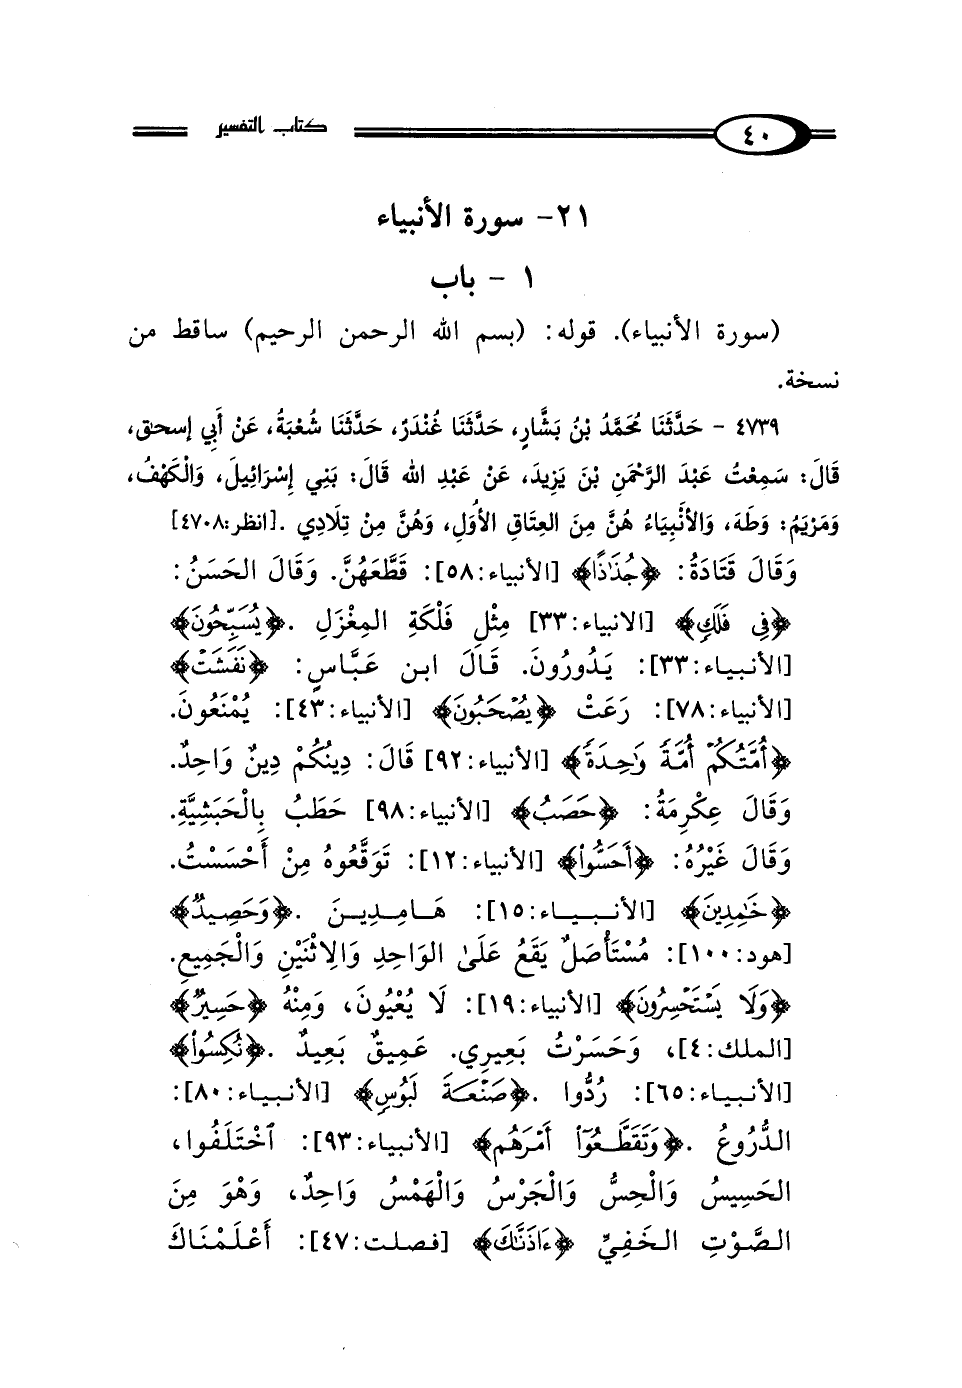 ٤٠
كتاب التفسير
٢١- سورة الأنبياء
١ - باب
(سورة الأنبياء). قوله: (بسم الله الرحمن الرحيم) ساقط من
نسخة.
٤٧٣٩ - حَدَّثَنَا مُحَمَّدُ بْنُ بَشَّارٍ، حَدَّثَنَا غُنْدَرٌ، حَدَّثَنَا شُعْبَةُ، عَنْ أَبِي إسحٰق،
قَالَ: سَمِعْتُ عَبْدَ الرَّحْمَنِ بْنَ يَزِيدَ، عَنْ عَبْدِ الله قَالَ: بَنِي إِسْرَائِيلَ، وَالْكَهْفُ،
وَمَرْيَمُ: وَطَهَ، وَالأَنْبِيَاءُ هُنَّ مِنَ العِتَاقِ الأُوَلِ، وَهُنَّ مِنْ تِلَادِي .[انظر:٤٧٠٨]
وَقَالَ قَتَادَةُ: ﴿جُذَٰذًا﴾ [الأنبياء:٥٨]: قَطَّعَهُنَّ. وَقَالَ الحَسَنُ:
﴿فِي فَلَكٍ﴾ [الانبياء:٣٣] مِثْلِ فَلْكَةِ المِغْزَلِ .﴿يُسَبِّحُونَ﴾
[الأنبياء:٣٣]: يَدُورُونَ. قَالَ ابن عَبَّاسٍ: ﴿نَفَشَتْ﴾
[الأنبياء:٧٨]: رَعَتْ ﴿يُصْحَبُونَ﴾ [الأنبياء:٤٣]: يُمْنَعُونَ.
﴿أُمَّتُكُمْ أُمَّةً وَٰحِدَةً﴾ [الأنبياء:٩٢] قَالَ: دِينُكُمْ دِينٌ وَاحِدٌ.
وَقَالَ عِكْرِمَةُ: ﴿حَصَبُ﴾ [الأنبياء:٩٨] حَطَبُ بِالْحَبَشِيَّةِ.
وَقَالَ غَيْرُهُ: ﴿أَحَسُّواْ﴾ [الأنبياء:١٢]: تَوَقَّعُوهُ مِنْ أَحْسَسْتُ.
﴿خَٰمِدِينَ﴾ [الأنبياء:١٥]: هَامِدِينَ .﴿وَحَصِيدٌ﴾
[هود:١٠٠]: مُسْتَأْصَلٌ يَقَعُ عَلَىٰ الوَاحِدِ وَالاِثْنَيْنِ وَالْجَمِيعِ.
﴿وَلَا يَسْتَحْسِرُونَ﴾ [الأنبياء:١٩]: لَا يُعْيُونَ، وَمِنْهُ ﴿حَسِيرٌ﴾
[الملك:٤]، وَحَسَرْتُ بَعِيرِي. عَمِيقٌ بَعِيدٌ .﴿نُكِسُواْ﴾
[الأنبياء:٦٥]: رُدُّوا .﴿صَنْعَةَ لَبُوسٍ﴾ [الأنبياء:٨٠]:
الدُّرُوعُ .﴿وَتَقَطَّعُوٓاْ أَمْرَهُم﴾ [الأنبياء:٩٣]: ٱخْتَلَفُوا،
الحَسِيسُ وَالْحِسُّ وَالْجَرْسُ وَالْهَمْسُ وَاحِدٌ، وَهْوَ مِنَ
الصَّوْتِ الخَفِيِّ ﴿ءَاذَنَّٰكَ﴾ [فصلت:٤٧]: أَعْلَمْنَاكَ